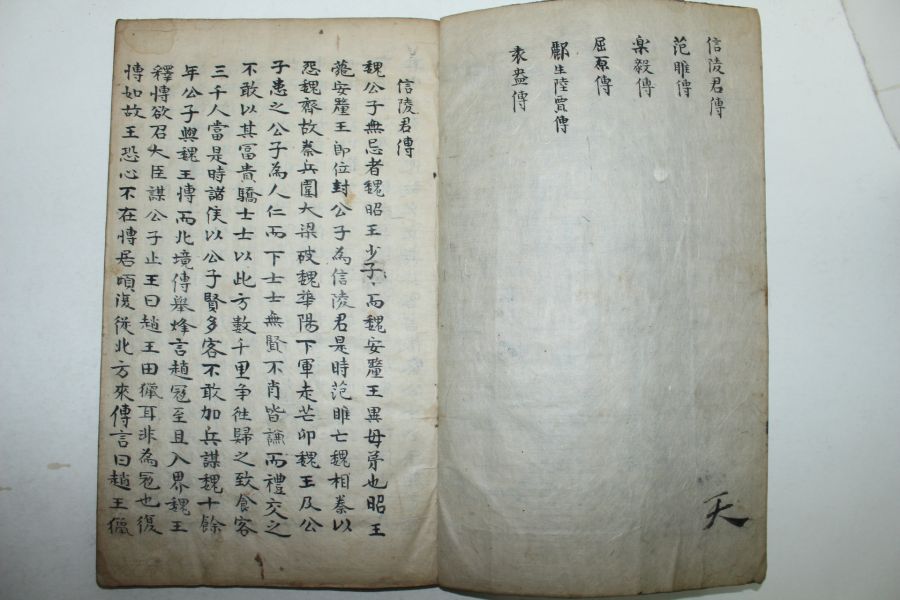 信陵君傳
范睢傳
楽毅傳
屈原傳
酈生陸賈傳
袁盎傳
天
信陵君傳
魏公子無忌者魏昭王少子而魏安釐王異母弟也昭王
薨安釐王即位封公子為信陵君是時范睢亡魏相秦以
怨魏齊故秦兵圍大梁破魏華陽下軍走芒卯魏王及公
子患之公子為人仁而下士士無賢不肖皆謙而禮交之
不敢以其冨貴驕士士以此方數千里争徃歸之致食客
三千人當是時諸侯以公子賢多客不敢加兵謀魏十餘
年公子與魏王慱而北境傳舉烽言趙冦至且入界魏王
釋慱欲召大臣謀公子止王曰趙王田獵耳非為冦也復
慱如故王恐心不在慱居頃復從北方來傳言曰趙王獵